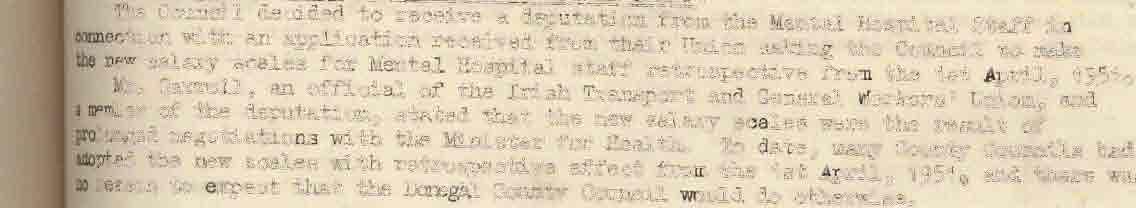 The Council decided to receive a deputation from the Mental Hospital Staff in
connection with an application received from their Union asking the Council to make
the new salary scales for Mental Hospital staff retrospective from the 1st April, 1951.
Mr. Carroll, an official of the Irish Transport and General Workers' Union, and
a member of the deputation, stated that the new salary scales were the result of
prolonged negotiations with the Minister for Health. To date, many County Councils had
adopted the new scales with retrospective effect from the 1st April, 1951, and there was
no reason to expect that the Donegal County Council would do otherwise.